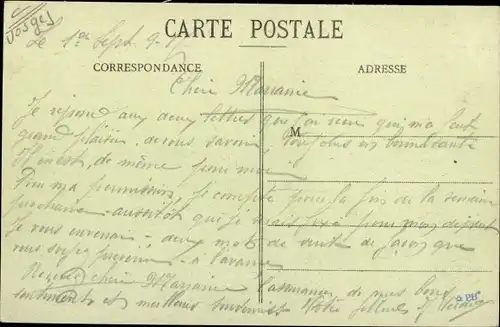 Vosges
CARTE POSTALE
Le 1er Sept.
CORRESPONDANCE
ADRESSE
Chère Marianie
Je répond aux deux lettres que j'ai reçu qui m'a fait
M
grand plaisir de vous savoir toujours en bonne santé
Il en est de même pour moi
ma permission, je compte pour la fin de la semaine
prochaine aussitôt que je serais fixé pour mon départ
Je vous enverrai deux mots de suite de façon que
vous soyez à l'avance
Recevez chère l'assurance de mes bons
sentiments et meilleurs Votre filleul